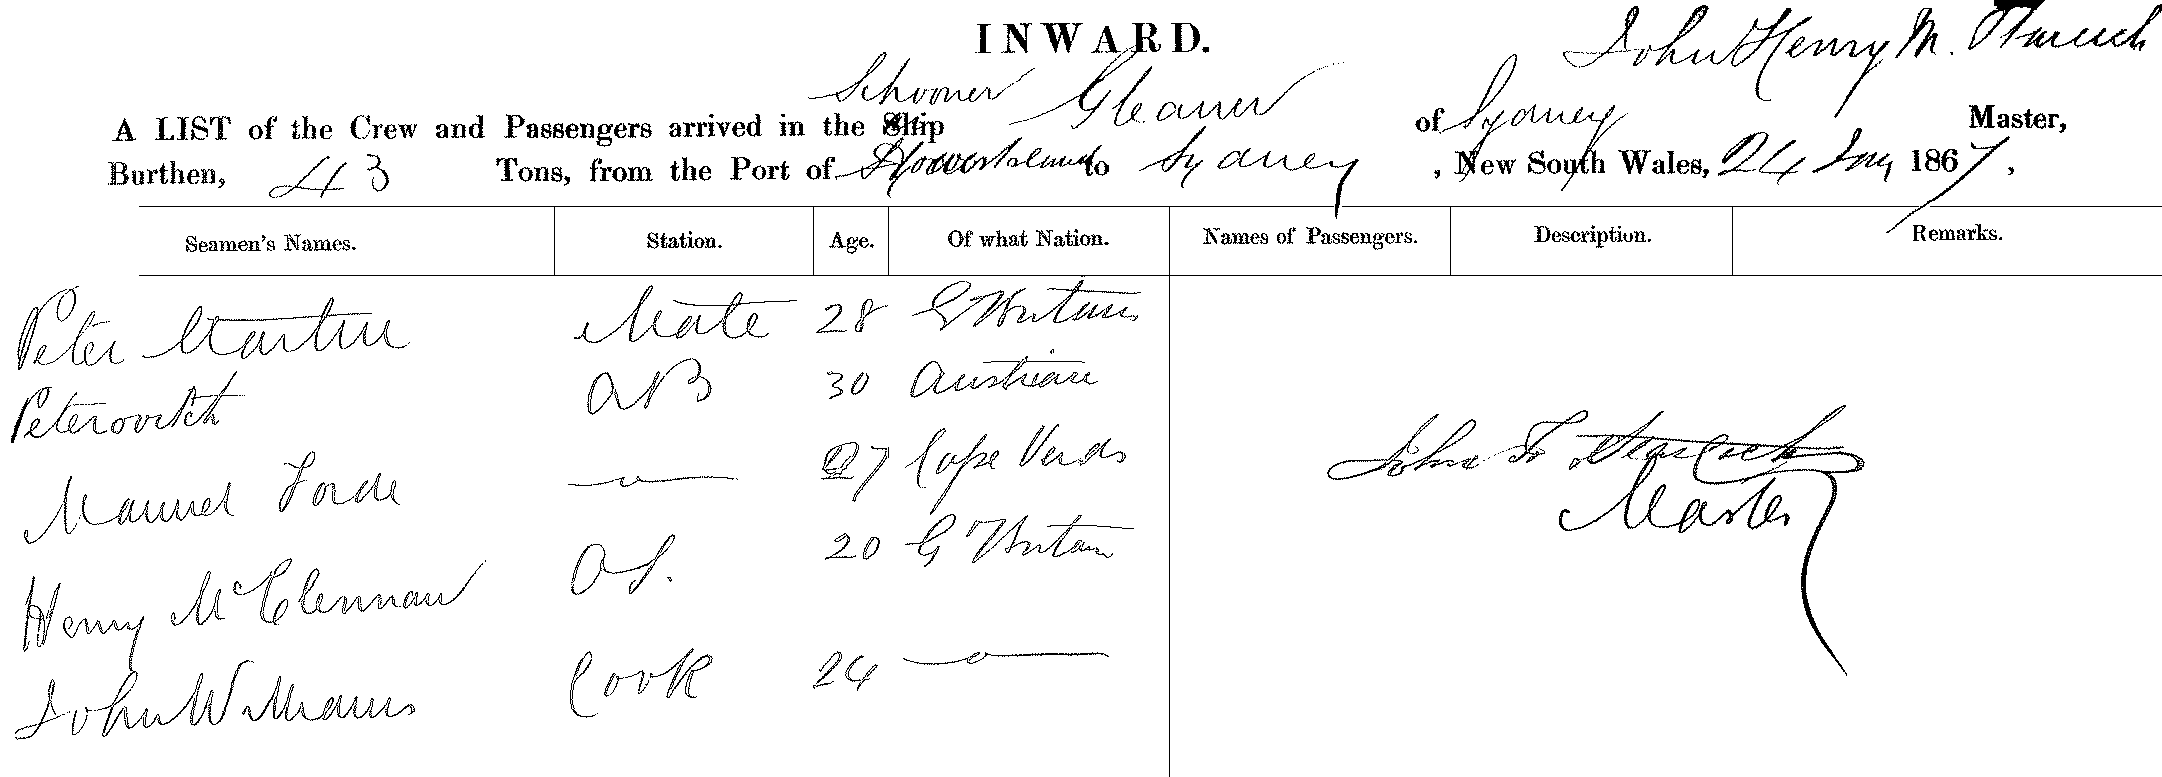 INWARD.
John Henry M.
Schooner Gleaner
A LIST of the Crew and Passengers arrived in the Ship of Sydney Master,
Burthen, 43 Tons, from the Port of to Sydney, New South Wales, 24 Jany 1867,
Seamen's Names. Station. Age. Of what Nation. Names of Passengers. Description. Remarks.
Peter Martin Mate 28 G Britain
Peterovitch AB 30 Austrian
Manuel Forde — " — 27 Cape Verds
Henry McClennan OS. 20 G Britain
John Williams Cook 24 — " —
John Peacock
Master